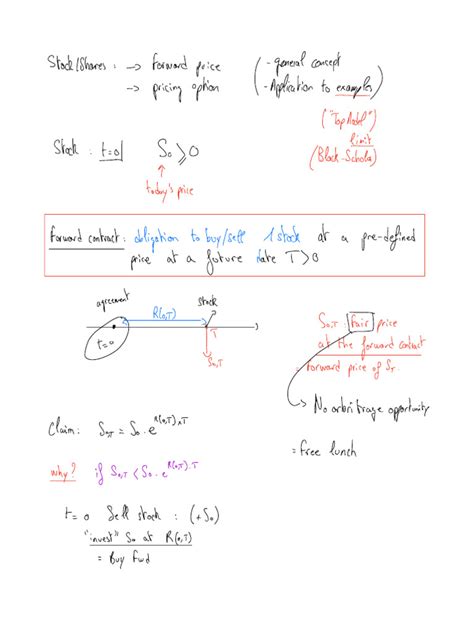 Stock/Shares : → forward price
→ pricing option
( - general concept
- Application to examples )
("Top Model")
limit
(Black-Scholes)
Stock : t=0 S₀ ≥ 0
↑
today's price
Forward contract : obligation to buy/sell 1 stock at a pre-defined
price at a future date T>0
agreement
R(0,T)
stock
t=0
T
S₀,T
S₀,T : fair price
at the forward contract
= forward price of S_T
No arbitrage opportunity
= free lunch
Claim : S₀,T = S₀ · e^R(0,T)·T
why? if S₀,T < S₀ · e^R(0,T)·T
t=0 Sell stock : (+S₀)
"invest" S₀ at R(0,T)
= Buy Fwd